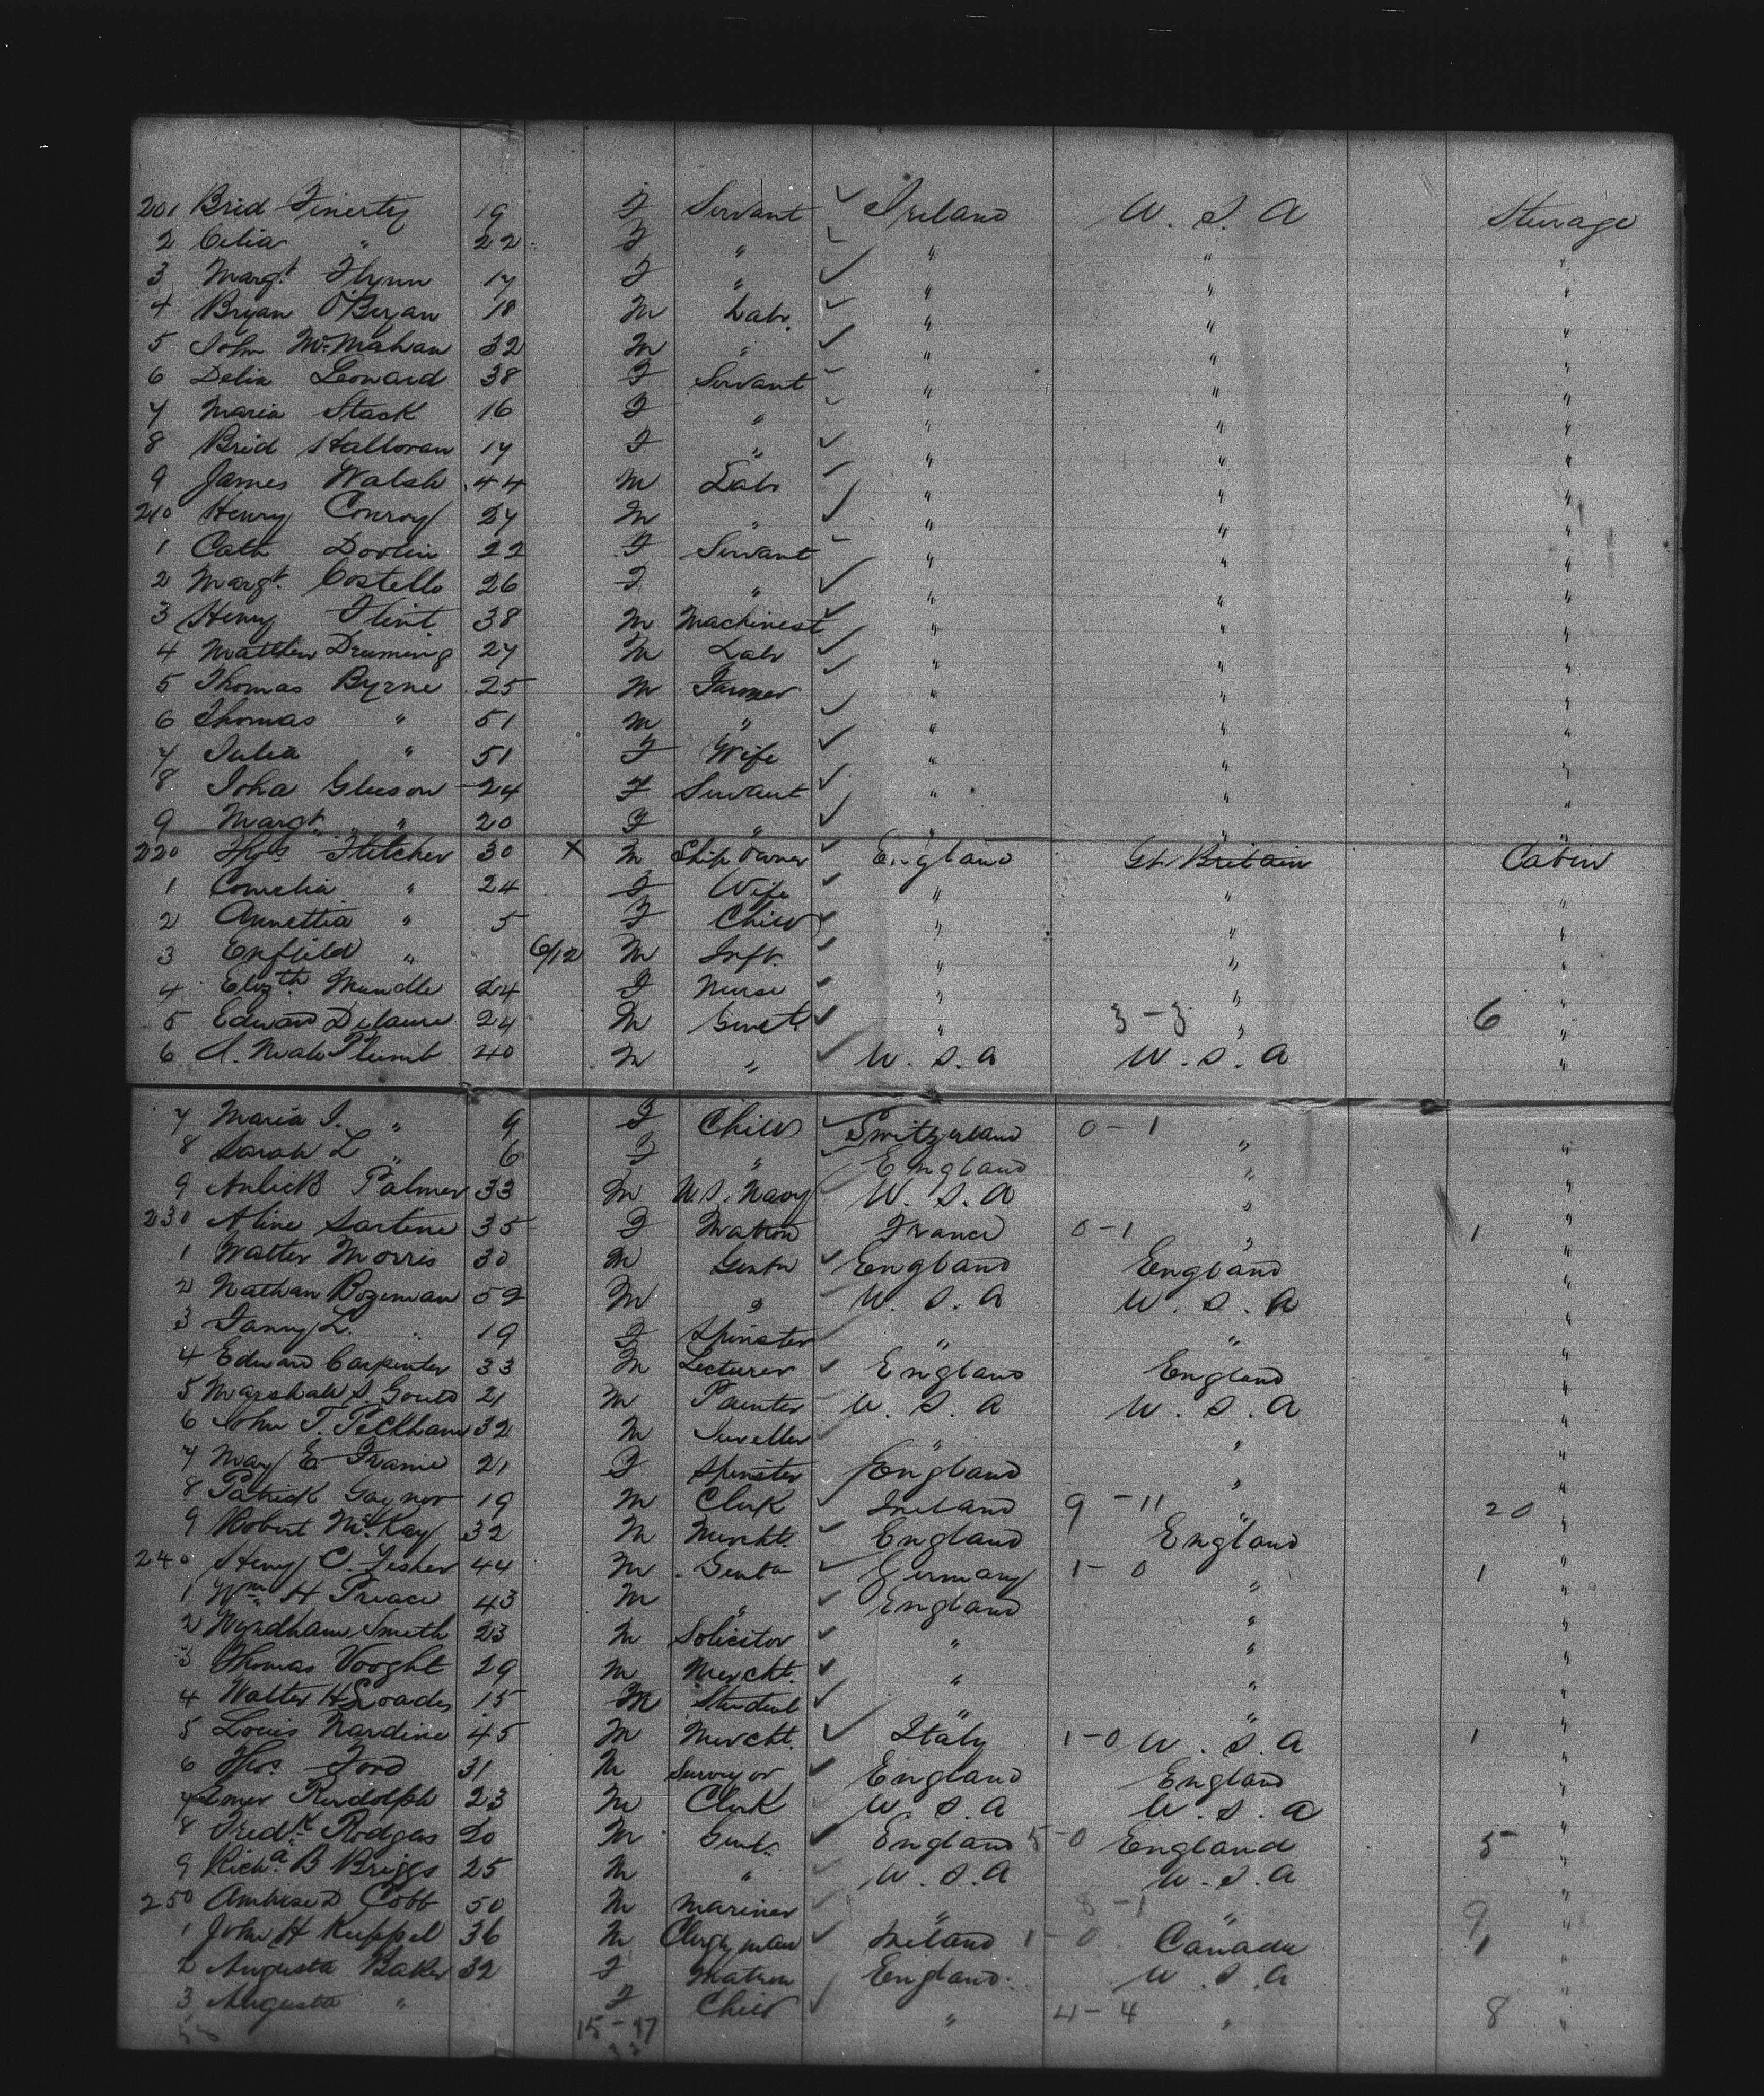 201 Brid Finerty 19 F Servant ✓ Ireland U. S. A Sterage
2 Celia " 22 F " ✓ " " "
3 Margt Flynn 17 F " ✓ " " "
4 Bryan O'Bryan 18 M Labr. ✓ " " "
5 John McMahan 32 M " ✓ " " "
6 Delia Leonard 38 F Servant ✓ " " "
7 Maria Stack 16 F " ✓ " " "
8 Brid Halloran 17 F " ✓ " " "
9 James Walsh 44 M Labr ✓ " " "
210 Henry Conroy 27 M " ✓ " " "
1 Cath Doolin 22 F Servant ✓ " " "
2 Margt. Costello 26 F " ✓ " " "
3 Henry Flint 38 M Machinest ✓ " " "
4 Matthew 27 M Labr ✓ " " "
5 Thomas Byrne 25 M Farmer ✓ " " "
6 Thomas " 51 M " ✓ " " "
7 Julia " 51 F Wife ✓ " " "
8 Joha Gleeson 24 F Servant ✓ " " "
9 Margt " 20 F " ✓ " " "
220 Thos Fletcher 30 X M Ship owner ✓ England Gt. Britain Cabin
1 Cornelia " 24 F Wife ✓ " " "
2 Annettia " 5 F Child ✓ " " "
3 Enfield " 6/12 M Inft. ✓ " " "
4 Elizth Mundle 24 F Nurse ✓ " " "
5 Edward 24 M Gent. ✓ " 3-3 " 6 "
6 Plumb 40 M " ✓ U. S. A U. S. A "
7 Maria I. " 9 F Child ✓ Switzerland 0-1 " "
8 Sarah L " 6 F " ✓ England " "
9 Aulick Palmer 33 M U.S. Navy ✓ U. S. A " "
230 Aline Sartene 35 F Matron France 0-1 " 1 "
1 Walter Morris 30 M Gentn ✓ England England "
2 Nathan Bozeman 52 M " ✓ U. S. A U. S. A "
3 Fanny L. " 19 F Spinster ✓ " " "
4 Edward Carpenter 33 M Lecturer ✓ England England "
5 Marshall S. Gould 21 M Painter U. S. A U. S. A "
6 John T. Peckham 32 M Jeweller ✓ " " "
7 May E Frame 21 F Spinster England " "
8 Patrick Gaynor 19 M Clerk ✓ Ireland 9-11 " 20 "
9 Robert McKay 32 M Mercht. ✓ England England "
240 Henry C. Fisher 44 M Gentn ✓ Germany 1-0 " 1 "
1 Wm H Preace 43 M " ✓ England " "
2 Wyndham Smith 23 M Solicitor ✓ " " "
3 Thomas Vooght 29 M Mercht. ✓ " " "
4 Walter H Loades 15 M Student ✓ " " "
5 Louis Nardine 45 M Mercht. ✓ Italy 1-0 U. S. A 1 "
6 Thos. Ford 31 M Surveyor ✓ England England "
7 Rudolph 23 M Clerk ✓ U. S. A U. S. A "
8 Fredk Rodgas 20 M Gent. ✓ England 5-0 England 5 "
9 Richd B Briggs 25 M " ✓ U. S. A U. S. A "
250 Ambrose D Cobb 50 M Mariner ✓ " 8-1 " 9 "
1 John H Keppel 36 M Clergyman ✓ Ireland 1-0 Canada 1 "
2 Augusta Baker 32 F Matron England U. S. A "
3 Augusta " F Child ✓ " 4-4 " 8 "
15-17